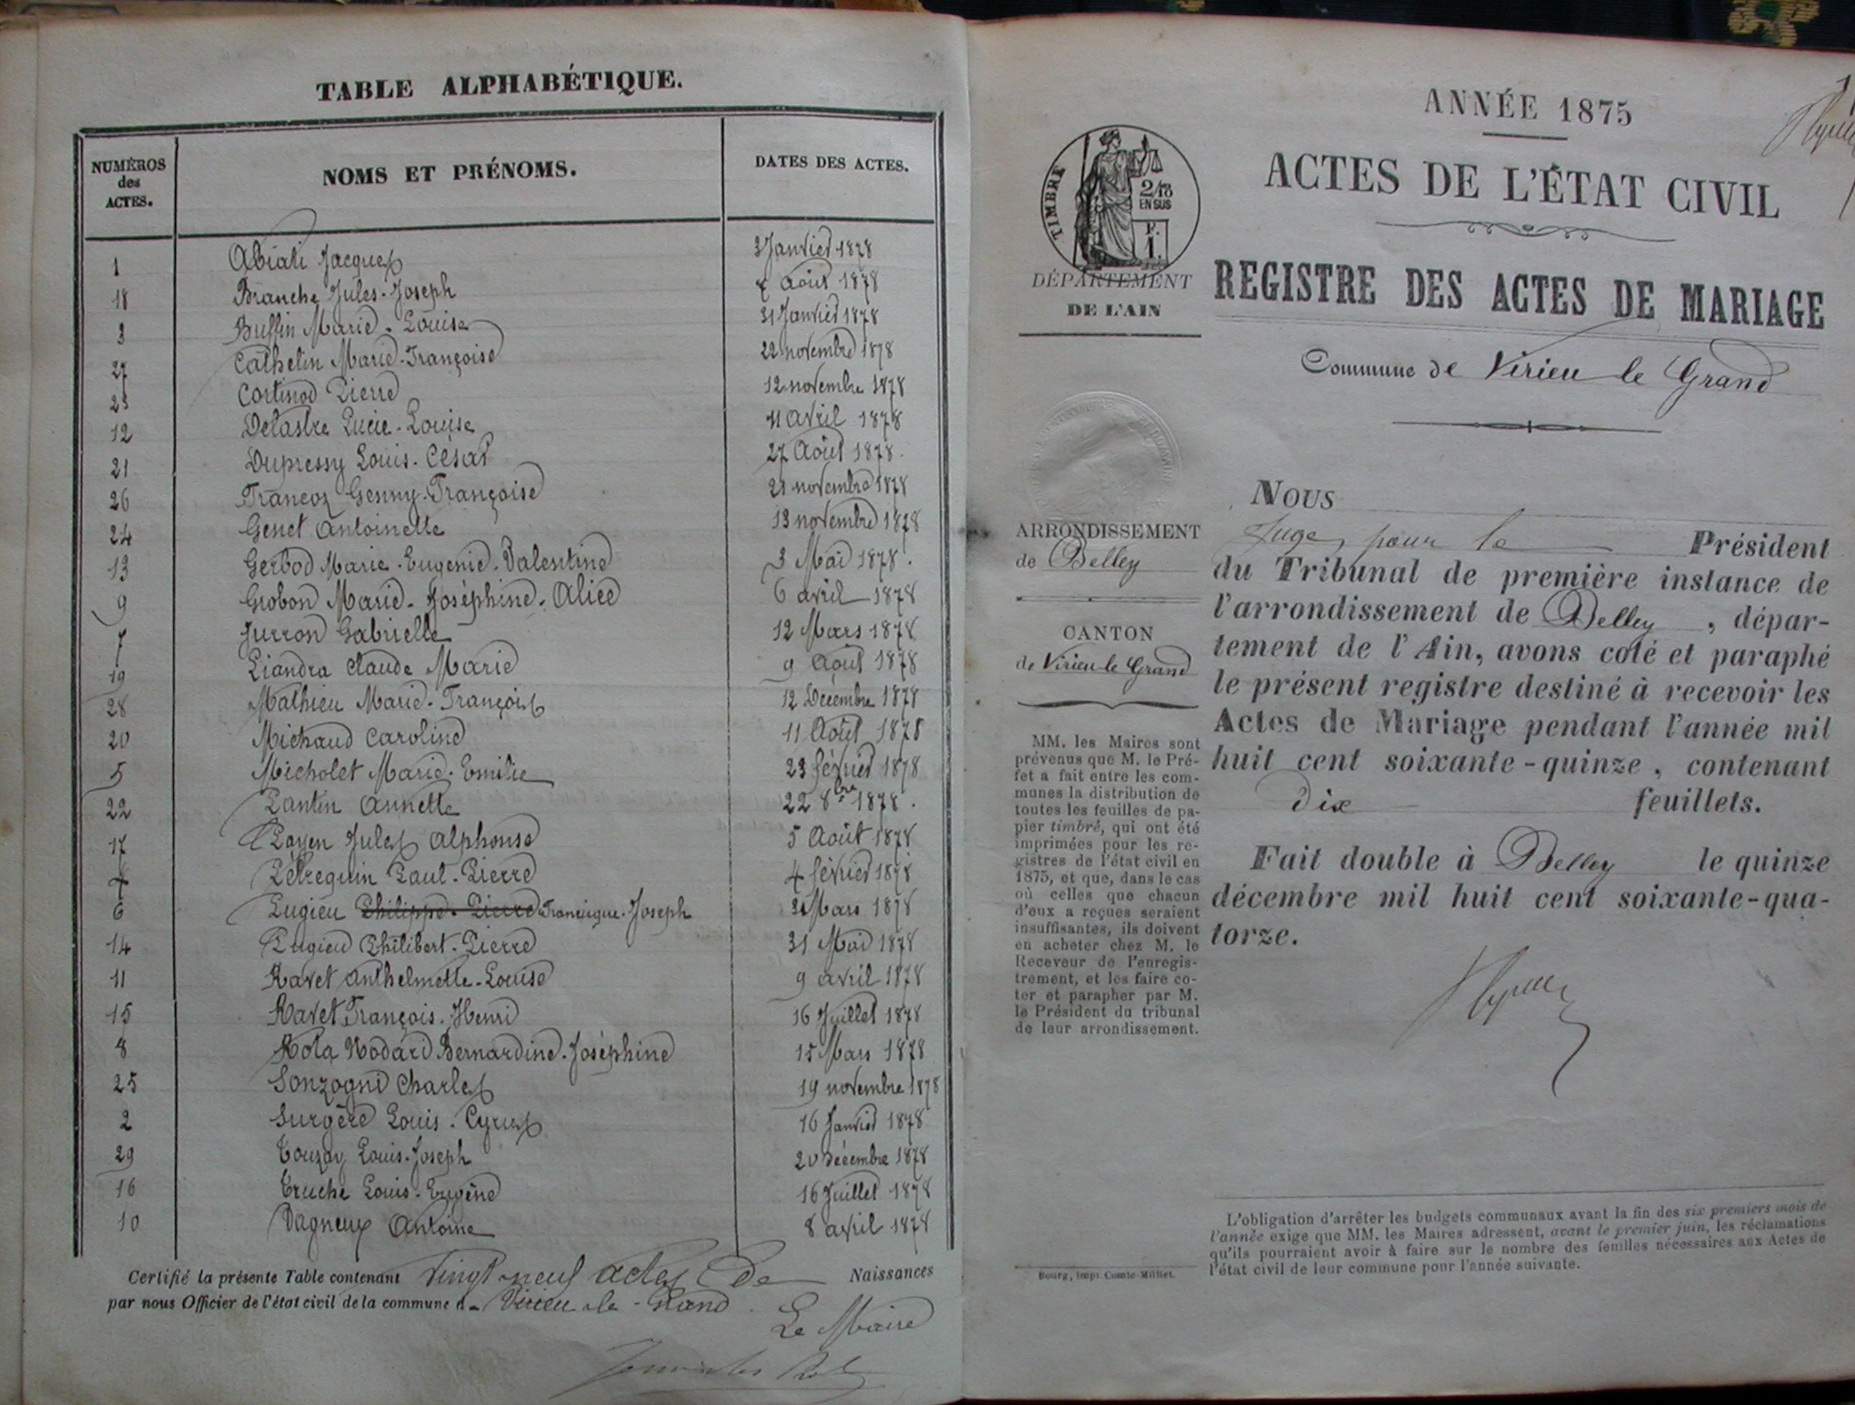 TABLE ALPHABÉTIQUE.
NUMÉROS des ACTES. NOMS ET PRÉNOMS. DATES DES ACTES.
1 Abiati Jacques 3 Janvier 1878
18 Branche Jules-Joseph 7 Août 1878
3 Buffin Marie-Louise 31 Janvier 1878
27 Cathelin Marie-Françoise 22 novembre 1878
23 Cortinod Pierre 12 novembre 1878
12 Delastre Lucie-Louise 11 Avril 1878
21 Dupressy Louis-César 27 Août 1878.
26 Francoz Genny-Françoise 21 novembre 1878
24 Genet Antoinette 13 novembre 1878
13 Gerbod Marie-Eugenie-Valentine 3 Mai 1878.
9 Grobon Marie-Joséphine-Alice 6 avril 1878
7 Jurron Gabrielle 12 Mars 1878
19 Liandra Claude Marie 9 Août 1878
28 Mathieu Marie-François 12 Décembre 1878
20 Michaud Caroline 11 Août 1878
5 Micholet Marie-Emilie 23 février 1878
22 Pantin Annette 22 8bre 1878.
17 Payen Jules Alphonse 5 Août 1878
4 Pétrequin Paul-Pierre 4 février 1878
6 Pugieu Philippe-Pierre Francisque-Joseph Mars 1878
14 Pugieu Philibert-Pierre 31 Mai 1878
11 Ravet Anthelmette-Louise 9 avril 1878
15 Ravet François-Henri 16 Juillet 1878
8 Rota Nodari Bernardine-Joséphine 15 Mars 1878
25 Sonzogni Charles 19 novembre 1878
2 Surgère Louis-Cyrus 16 Janvier 1878
29 Touzay Louis-Joseph 20 Décembre 1878
16 Truche Louis-Eugène 16 Juillet 1878
10 Vagneux Antoine 8 avril 1878
Certifié la présente Table contenant vingt-neuf actes de Naissances
par nous Officier de l'état civil de la commune de Virieu-le-Grand.
Le Maire
ANNÉE 1875
ACTES DE L'ÉTAT CIVIL
REGISTRE DES ACTES DE MARIAGE
Commune de Virieu le Grand
TIMBRE
2/10
EN SUS
F.
1.
DÉPARTEMENT
DE L'AIN
ARRONDISSEMENT
de Belley
CANTON
de Virieu-le-Grand
MM. les Maires sont
prévenus que M. le Pré-
fet a fait entre les com-
munes la distribution de
toutes les feuilles de pa-
pier timbré, qui ont été
imprimées pour les re-
gistres de l'état civil en
1875, et que, dans le cas
où celles que chacun
d'eux a reçues seraient
insuffisantes, ils doivent
en acheter chez M. le
Receveur de l'enregis-
trement, et les faire co-
ter et parapher par M.
le Président du tribunal
de leur arrondissement.
Bourg, impr. Comte-Milliet.
NOUS
Juge pour le Président
du Tribunal de première instance de
l'arrondissement de Belley, dépar-
tement de l'Ain, avons coté et paraphé
le présent registre destiné à recevoir les
Actes de Mariage pendant l'année mil
huit cent soixante-quinze, contenant
dix feuillets.
Fait double à Belley le quinze
décembre mil huit cent soixante-qua-
torze.
L'obligation d'arrêter les budgets communaux avant la fin des six premiers mois de
l'année exige que MM. les Maires adressent, avant le premier juin, les réclamations
qu'ils pourraient avoir à faire sur le nombre des feuilles nécessaires aux Actes de
l'état civil de leur commune pour l'année suivante.